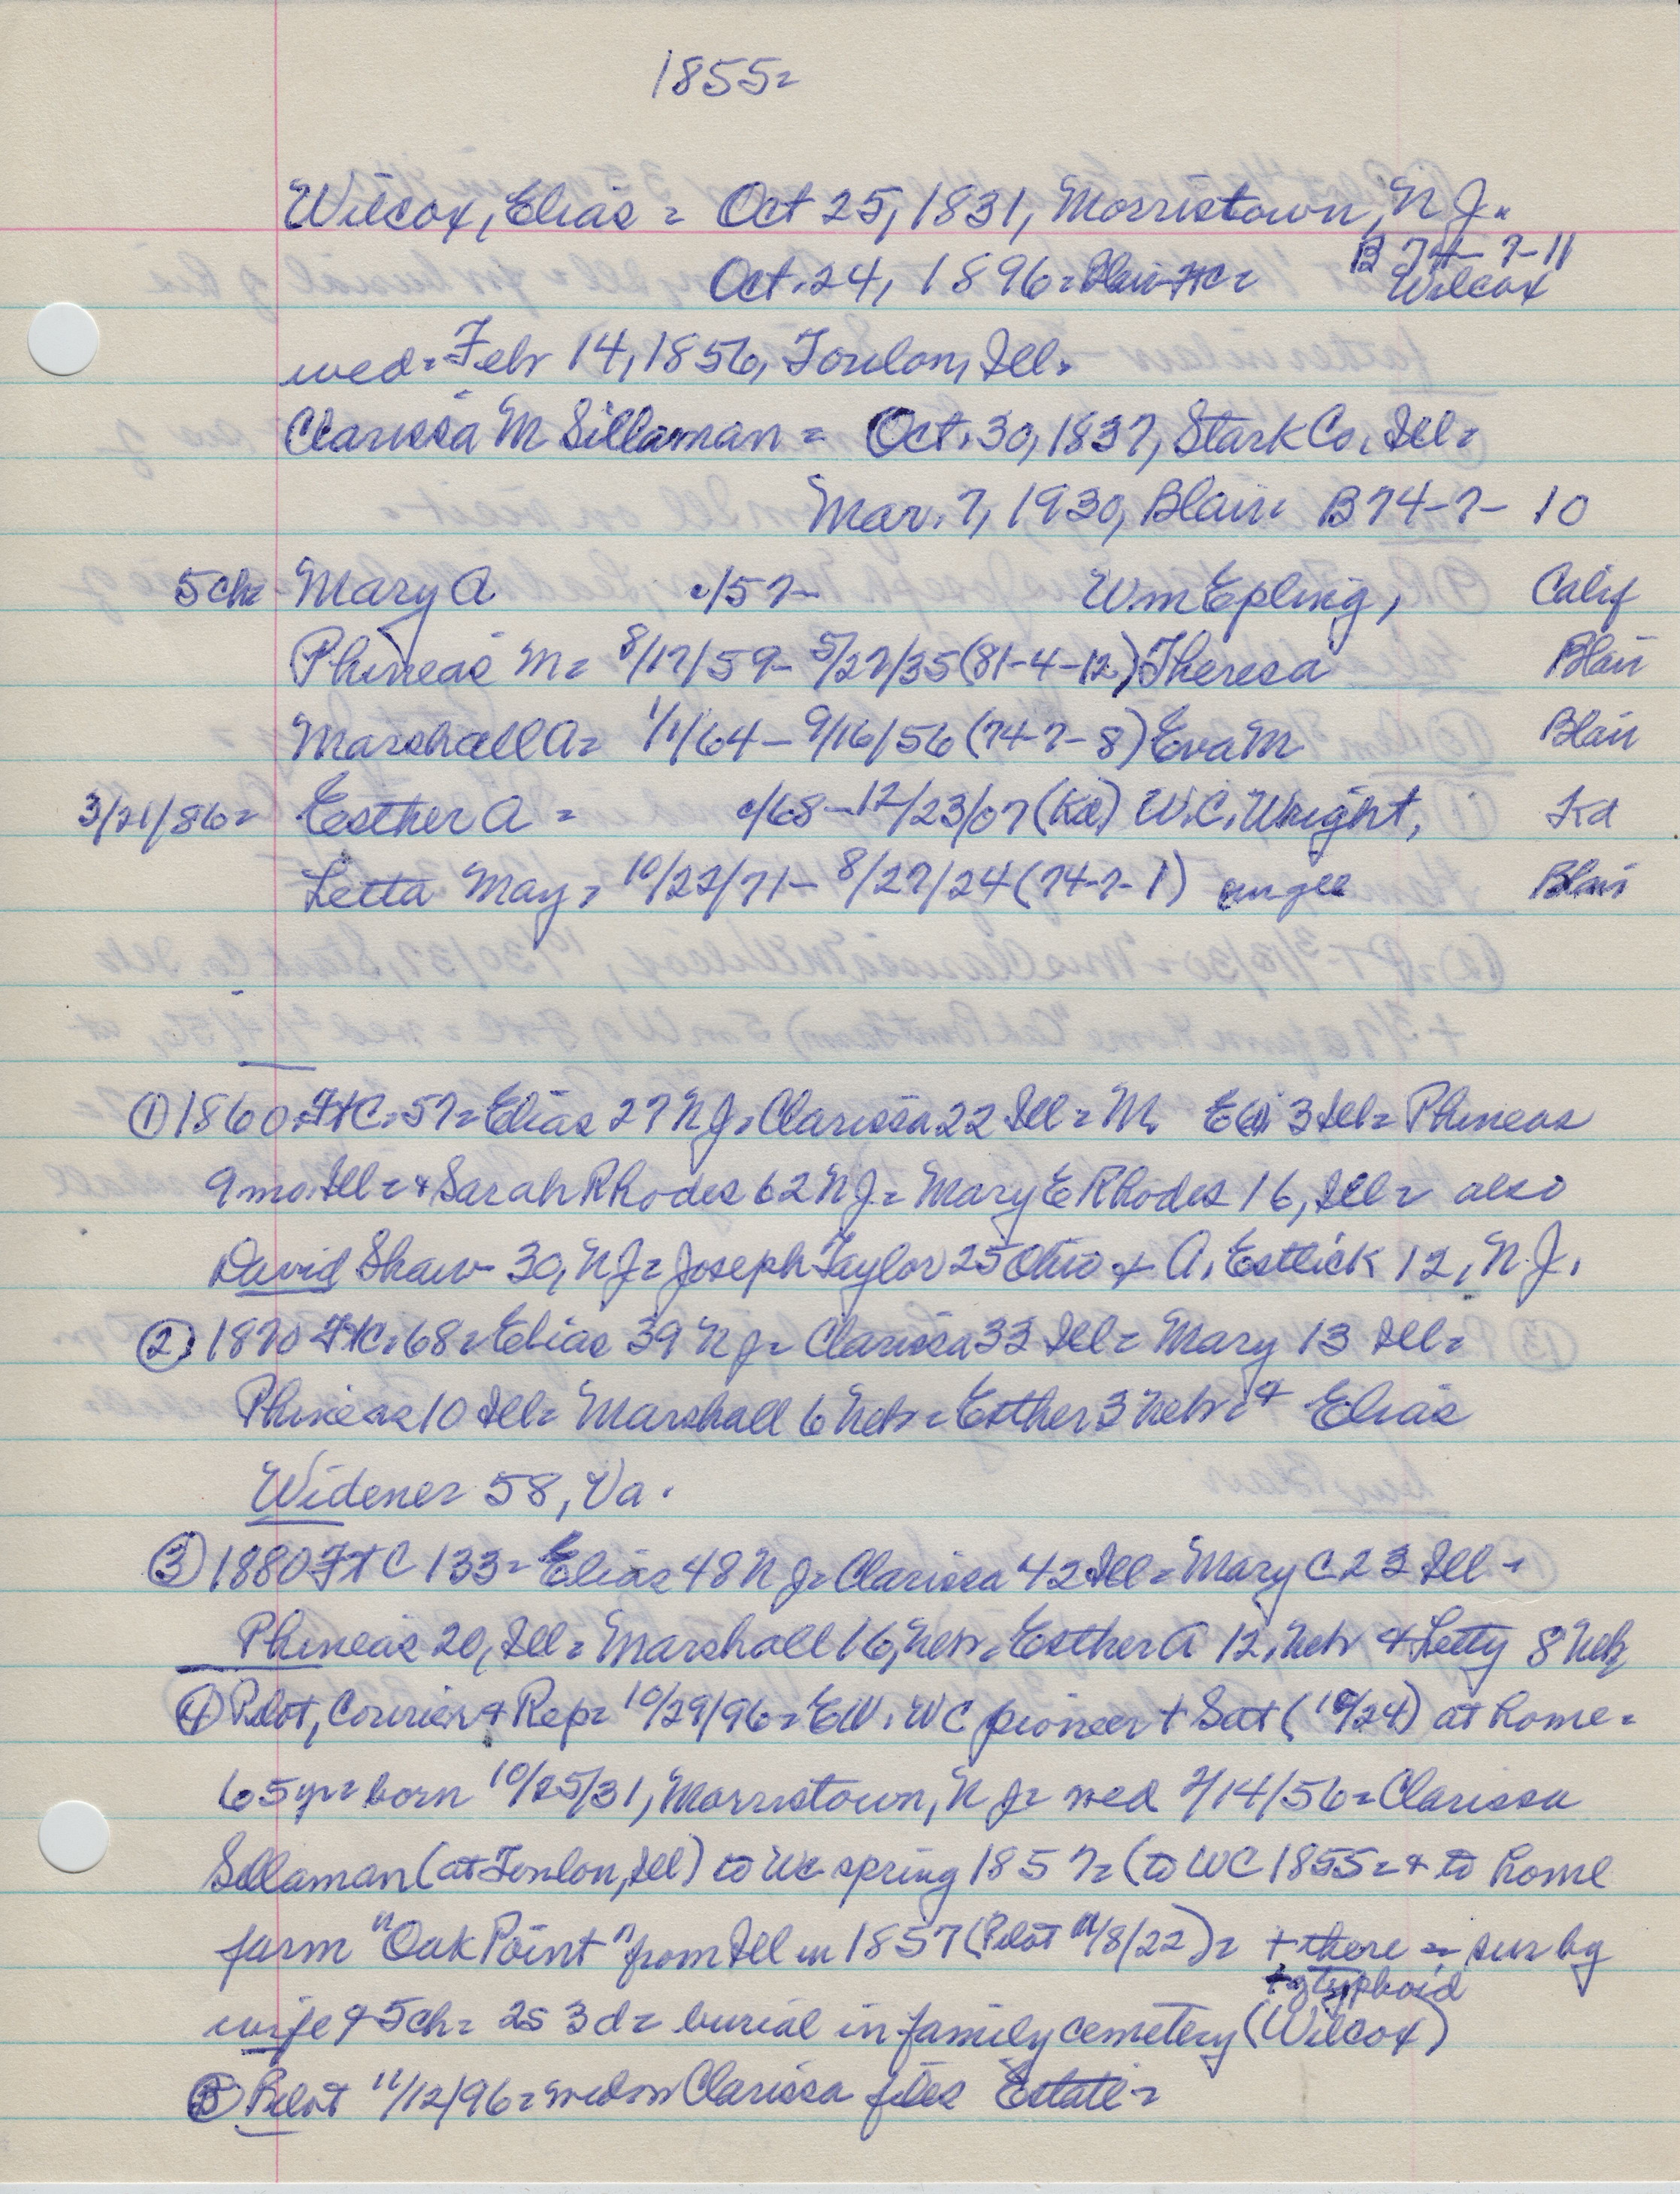 1855=
Wilcox, Elias = Oct 25, 1831, Morristown, N J.
B 74-7-11
Oct. 24, 1896 = Blair FtC = Wilcox
wed = Feb 14, 1856, Toulon, Ill.
Clarissa M Sillaman = Oct. 30, 1837, Stark Co, Ill =
Mar. 7, 1930, Blair. B 74-7- 10
5 ch = Mary A c/57- Wm Epling, Calif
Phineas M = 8/17/59- 5/27/35 (81-4-12) Theresa Blair
Marshall A = 1/1/64 - 9/16/56 (74-7-8) Eva M Blair
3/21/86 = Esther A = c/68 - 12/23/07 (Kd) W.C. Wright, Kd
Letta May = 10/22/71 - 8/27/24 (74-7-1) Blair
① 1860 FtC. 57 = Elias 27 N J = Clarissa 22 Ill = M. 3 Ill = Phineas
9 mo. Ill = + Sarah Rhodes 62 N J = Mary E Rhodes 16, Ill = also
David Shaw 30, N J = Joseph Taylor 25 Ohio + A. Estlick 12, N.J.
② 1870 FtC. 68 = Elias 39 N J = Clarissa 33 Ill = Mary 13 Ill =
Phineas 10 Ill = Marshall 6 Neb = Esther 3 Neb = + Elias
Widener 58, Va.
③ 1880 FtC 133 = Elias 48 N J = Clarissa 42 Ill = Mary C 23 Ill =
Phineas 20, Ill = Marshall 16, Neb = Esther A 12, Neb + Letty 8 Neb
④ Pilot, Courier + Rep = 10/29/96 = EW. WC pioneer + Sat (10/24) at home =
65 yr = born 10/25/31, Morristown, N J = wed 2/14/56 = Clarissa
Sillaman (at Toulon, Ill) to WC spring 1857 = (to WC 1855 = + to home
farm "Oak Point" from Ill in 1857 (Pilot /8/22) = + there = sur by
+ of typhoid
wife + 5 ch = 2s 3d = burial in family cemetery (Wilcox)
⑤ Pilot 11/12/96 = widow Clarissa files Estate =